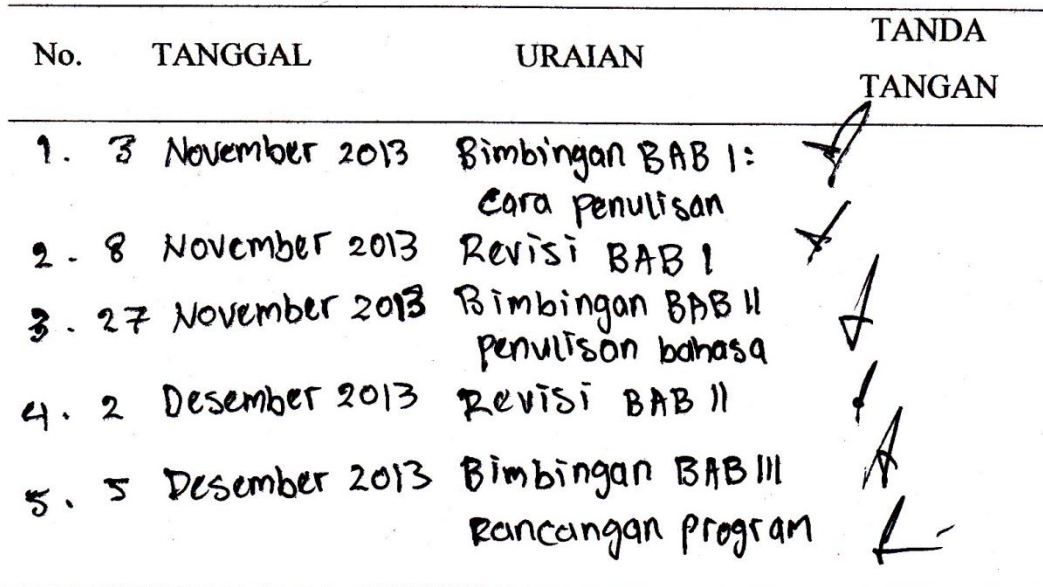 No. TANGGAL URAIAN TANDA TANGAN
1. 3 November 2013 Bimbingan BAB I:
cara penulisan
2. 8 November 2013 Revisi BAB I
3. 27 November 2013 Bimbingan BAB II
penulison bahasa
4. 2 Desember 2013 Revisi BAB II
5. 5 Desember 2013 Bimbingan BAB III
Rancangan program